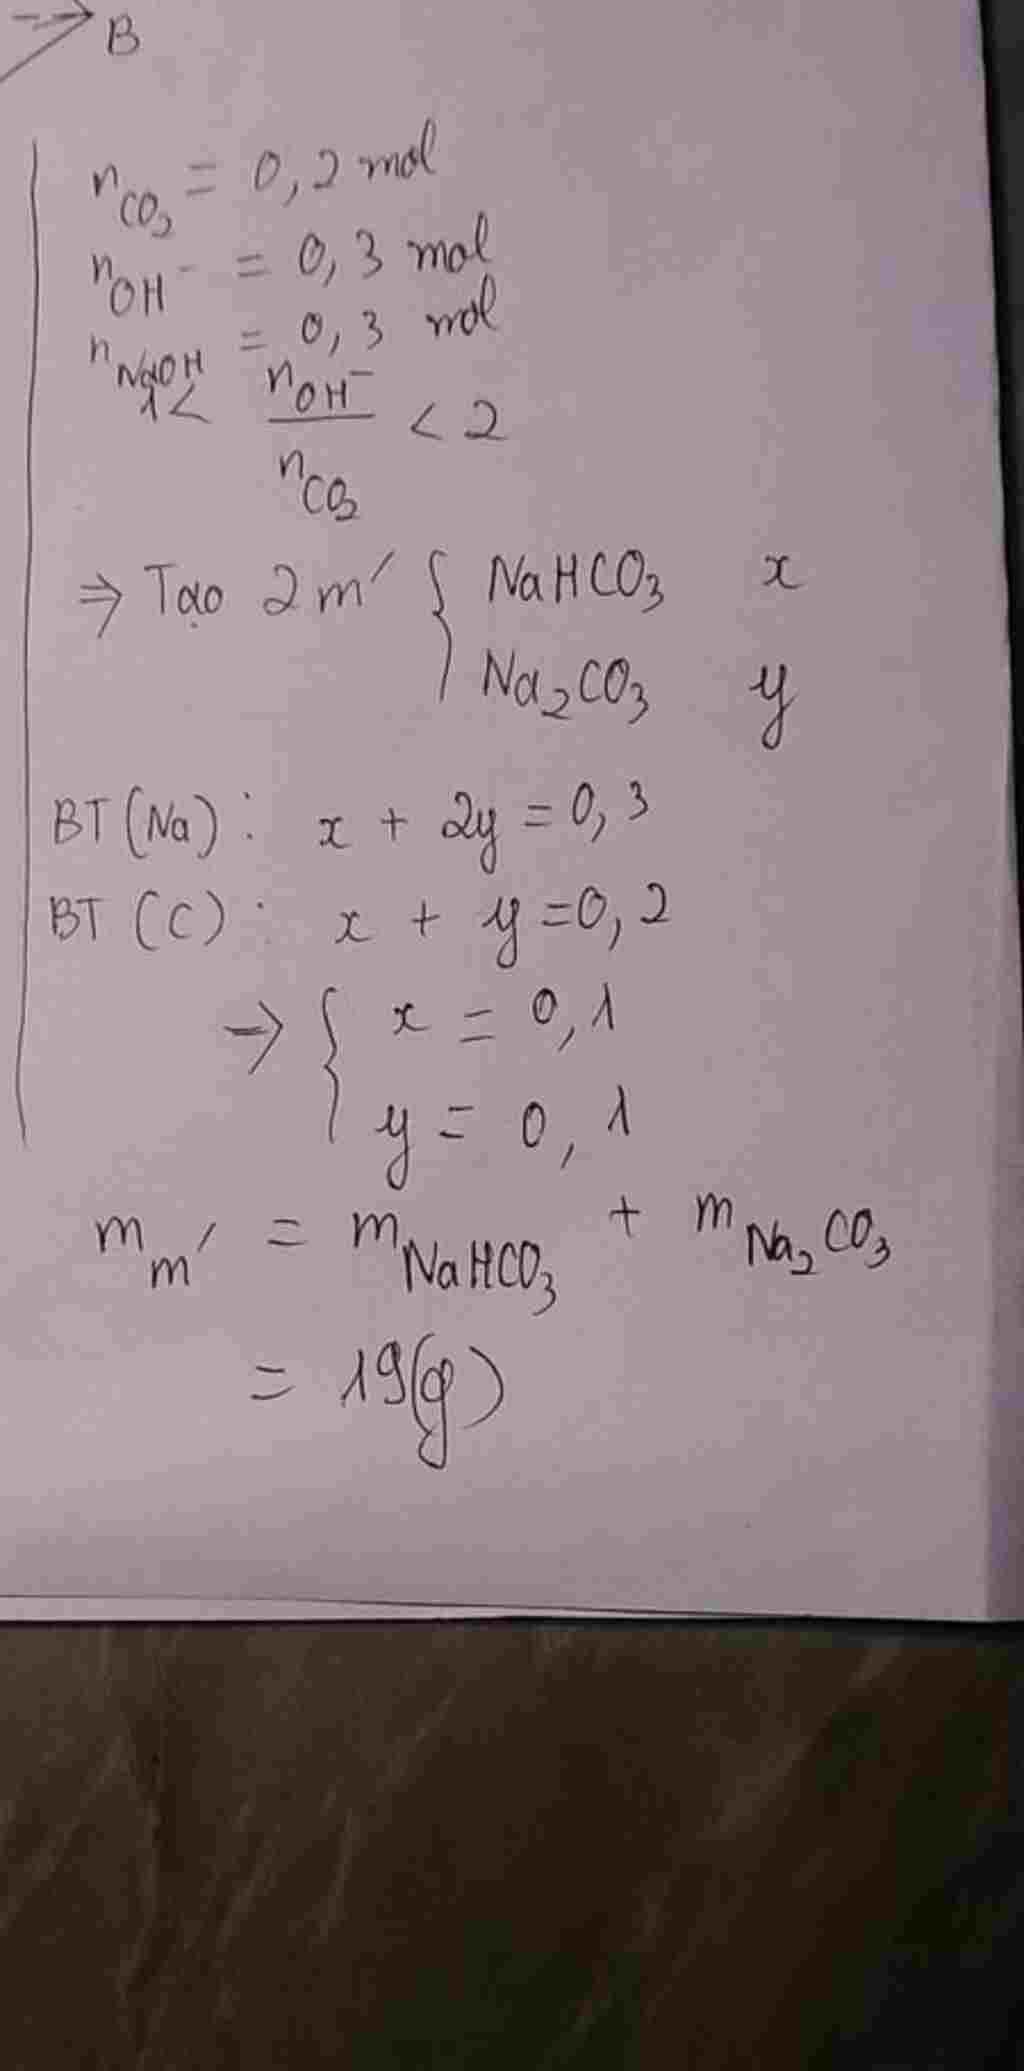 B
n_CO₂ = 0,2 mol
n_OH⁻ = 0,3 mol
n_NaOH = 0,3 mol
1 < n_OH⁻ / n_CO₂ < 2
⇒ Tạo 2 m' { NaHCO₃ x
Na₂CO₃ y
BT (Na) : x + 2y = 0,3
BT (C) : x + y = 0,2
→ { x = 0,1
y = 0,1
m_m' = m_NaHCO₃ + m_Na₂CO₃
= 19(g)